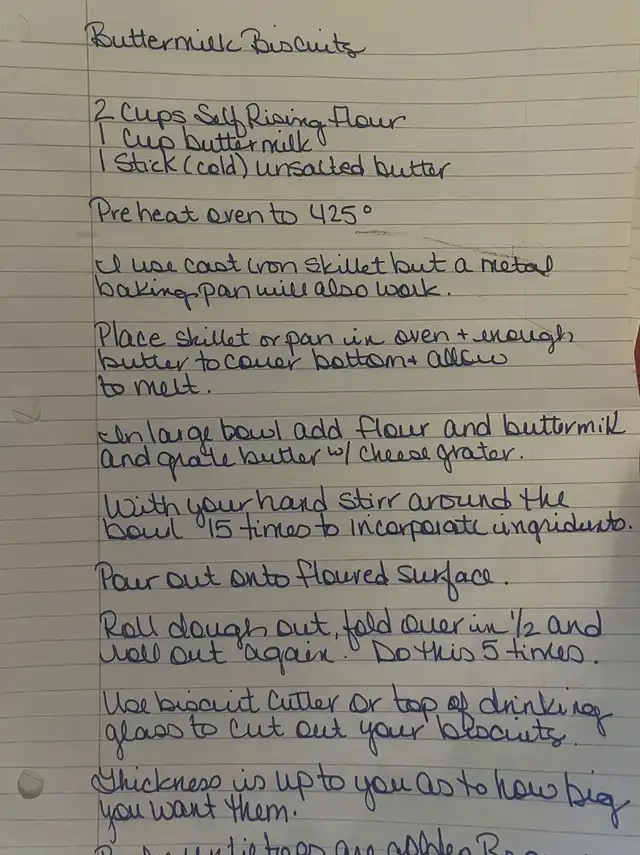 Buttermilk Biscuits
2 Cups Self Rising flour
1 Cup buttermilk
1 Stick (cold) unsalted butter
Preheat oven to 425°
I use cast iron skillet but a metal
baking pan will also work.
Place skillet or pan in oven + enough
butter to cover bottom + allow
to melt.
In large bowl add flour and buttermilk
and grate butter w/ cheese grater.
With your hand stirr around the
bowl 15 times to incorporate ingridients.
Pour out onto floured surface.
Roll dough out, fold over in 1/2 and
roll out again. Do this 5 times.
Use biscuit cutter or top of drinking
glass to cut out your biscuits.
Thickness is up to you as to how big
you want them.
tops are golden